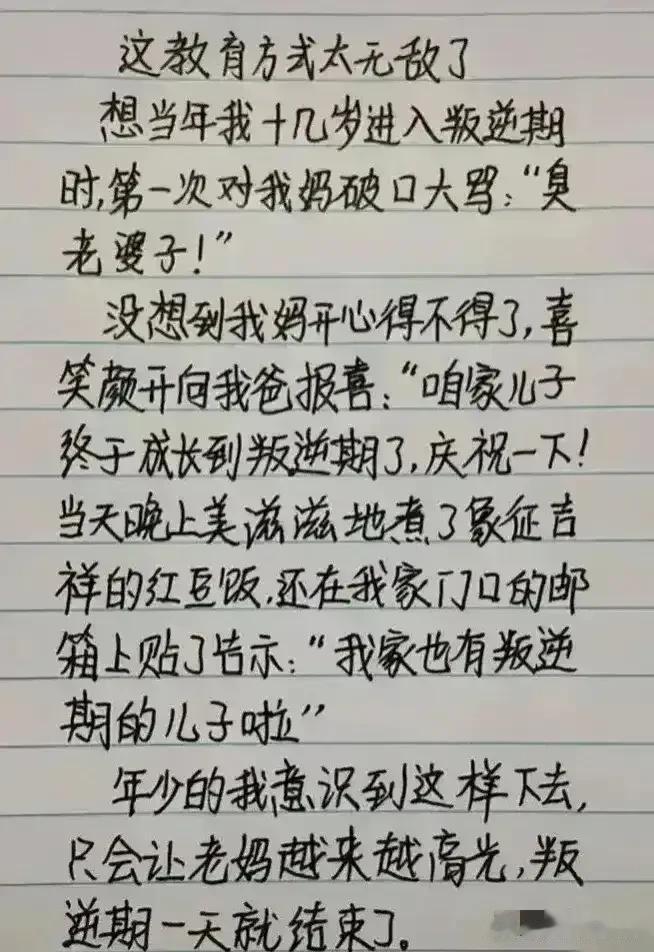 这教育方式太无敌了
想当年我十几岁进入叛逆期
时,第一次对我妈破口大骂:“臭
老婆子!”
没想到我妈开心得不得了,喜
笑颜开向我爸报喜:“咱家儿子
终于成长到叛逆期了,庆祝一下!
当天晚上美滋滋地煮了象征吉
祥的红豆饭,还在我家门口的邮
箱上贴了告示:“我家也有叛逆
期的儿子啦”
年少的我意识到这样下去,
只会让老妈越来越高光,叛
逆期一天就结束了。